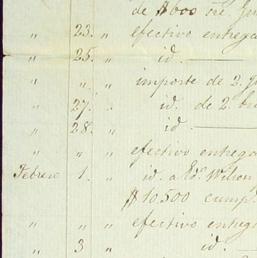 de $600
" 23. " efectivo entrega
" 25. " id.
" " " importe de 2.
" 27. " id. de 2.
" 28. " id
" " " efectivo entrega
Febrero 1. " id. a Wilson
$10.500
" " " efectivo entrega
" 3 " id.